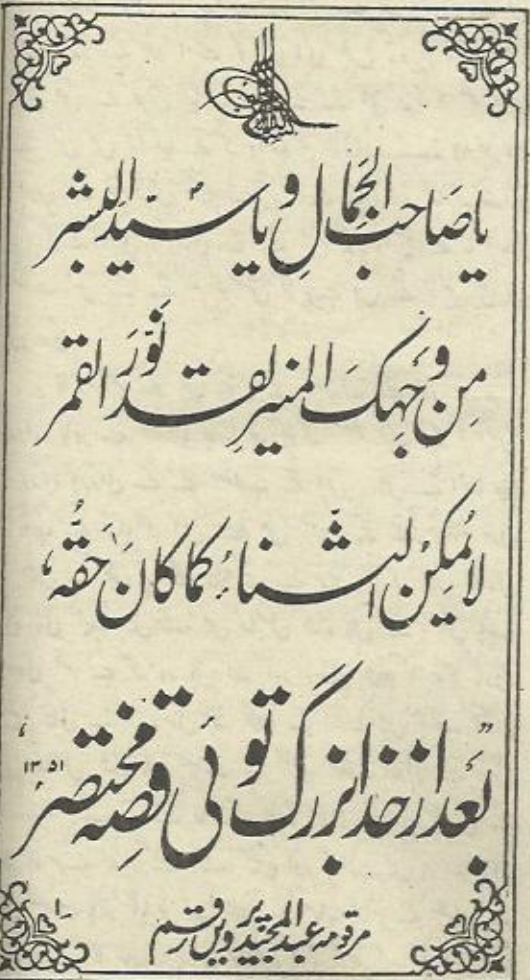 یا صَاحبَ الجَمالِ و یا سیّد البشر
مِن وَجہِکَ المنیر لقد نَوَّرَ القمر
لا یُمکِن الثّناءُ کما کانَ حَقُّہٗ
بعد از خدا بزرگ توئی قصہ مختصر
۱۳۵۱
مرقومہ عبدالمجید پرویں رقم